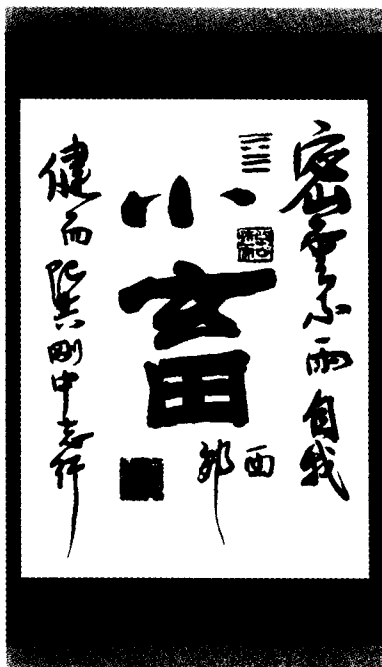 密雲不雨自我
西
郊
小畜
健而巽剛中志行